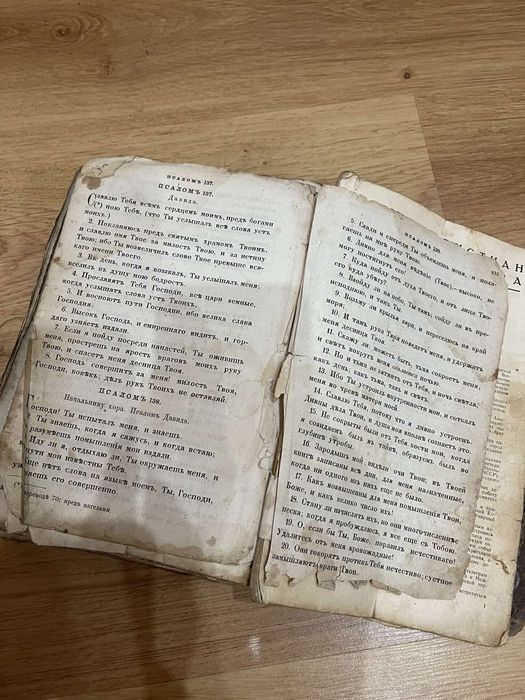 ПСАЛОМЪ 137.
ПСАЛОМЪ 137.
Давида.
Славлю Тебя всѣмъ сердцемъ моимъ, предъ богами
(*) пою Тебѣ, (что Ты услышалъ всѣ слова устъ
моихъ.)
2. Покланяюсь предъ святымъ храмомъ Твоимъ
и славлю имя Твое за милость Твою, и за истину
Твою; ибо Ты возвеличилъ слово Твое превыше вся-
каго имени Твоего.
3. Въ день, когда я воззвалъ, Ты услышалъ меня;
вселилъ въ душу мою бодрость.
4. Прославятъ Тебя Господи, всѣ цари земные,
когда услышатъ слова устъ Твоихъ,
5. И воспоютъ пути Господни, ибо велика слава
Господня.
6. Высокъ Господь, и смиреннаго видитъ, и гор-
даго узнаетъ издали.
7. Если я пойду посреди напастей, Ты оживишь
меня, прострешь на ярость враговъ моихъ руку
Твою, и спасетъ меня десница Твоя.
8. Господь совершитъ за меня! милость Твоя,
Господи, вовѣкъ; дѣлъ рукъ Твоихъ не оставляй.
ПСАЛОМЪ 138.
Начальнику хора. Псаломъ Давида.
Господи! Ты испыталъ меня, и знаешь.
2. Ты знаешь, когда я сажусь, и когда встаю;
разумѣешь помышленія мои издали.
Иду ли я, отдыхаю ли, Ты окружаешь меня, и
пути мои извѣстны Тебѣ.
Еще нѣтъ слова на языкѣ моемъ, Ты, Господи,
знаешь его совершенно.
переводѣ 70; предъ ангелами.
ПСАЛОМЪ 138.
5. Сзади и спереди Ты объемлешь меня, и пола-
гаешь на мнѣ руку Твою.
6. Дивно для меня вѣдѣніе (Твое),—высоко, не
могу постигнуть его!
7. Куда пойду отъ духа Твоего, и отъ лица Тво-
его куда убѣгу?
8. Взойду ли на небо, Ты тамъ; сойду ли въ пре-
исподнюю, и тамъ Ты.
9. Возьму ли крылья зари, и переселюсь на край
моря:
10. И тамъ рука Твоя поведетъ меня, и удержитъ
меня десница Твоя.
11. Скажу ли: можетъ быть, тьма сокроетъ меня,
и свѣтъ вокругъ меня сдѣлается ночью:
12. Но и тьма не затмитъ отъ Тебя, и ночь свѣтла,
какъ день, какъ тьма, такъ и свѣтъ.
13. Ибо Ты устроилъ внутренности мои, и соткалъ
меня во чревѣ матери моей.
14. Славлю Тебя, потому что я дивно устроенъ.
Дивны дѣла Твои, и душа моя вполнѣ сознаетъ это.
15. Не сокрыты были отъ Тебя кости мои, когда
я созидаемъ былъ въ тайнѣ, образуемъ былъ во
глубинѣ утробы.
16. Зародышъ мой видѣли очи Твои; въ Твоей
книгѣ записаны всѣ дни, для меня назначенные,
когда ни одного изъ нихъ еще не было.
17. Какъ возвышенны для меня помышленія Твои,
Боже, и какъ велико число ихъ!
18. Стану ли исчислять ихъ, но они многочисленнѣе
песка; когда я пробуждаюсь, я все еще съ Тобою.
19. О, если бы Ты, Боже, поразилъ нечестиваго!
Удалитесь отъ меня кровожадные!
20. Они говорятъ противъ Тебя нечестиво; суетное
замышляютъ враги Твои.